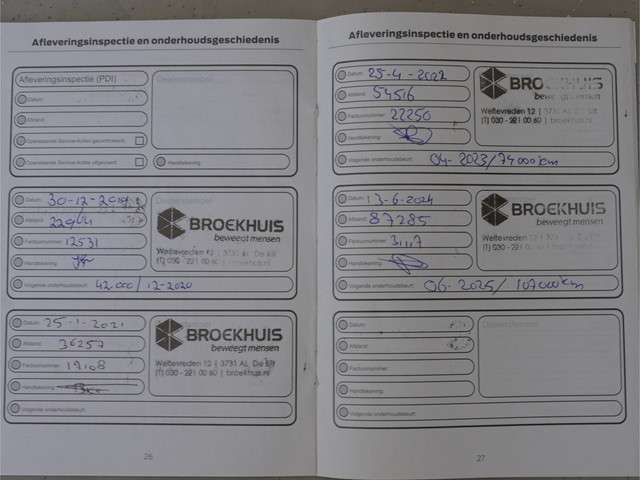 Afleveringsinspectie en onderhoudsgeschiedenis
Afleveringsinspectie (PDI)
Datum:
Afstand:
Factuurnummer:
Handtekening:
Datum: 30-12-2019
Afstand:
Factuurnummer: 12531
Handtekening:
Volgende onderhoudsbeurt: 42.000/12-2020
BROEKHUIS
beweegt mensen
Weltevreden 12 | 3731 AL De Bilt
(T) 030 - 221 00 60 | broekhuis.nl
Datum: 25-1-2021
Afstand: 36257
Factuurnummer: 19108
Handtekening:
Volgende onderhoudsbeurt:
BROEKHUIS
beweegt mensen
Weltevreden 12 | 3731 AL De Bilt
(T) 030 - 221 00 60 | broekhuis.nl
26
Afleveringsinspectie en onderhoudsgeschiedenis
Datum: 25-4-2022
Afstand: 54516
Factuurnummer: 22250
Handtekening:
Volgende onderhoudsbeurt: 04-2023/74000km
BROEKHUIS
beweegt mensen
Weltevreden 12 | 3731 AL De Bilt
(T) 030 - 221 00 60 | broekhuis.nl
Datum: 13-6-2024
Afstand: 87285
Factuurnummer: 31117
Handtekening:
Volgende onderhoudsbeurt: 06-2025/107000km
BROEKHUIS
beweegt mensen
Weltevreden 12
(T) 030 - 221 00 60
Datum:
Afstand:
Factuurnummer:
Handtekening:
Volgende onderhoudsbeurt:
27